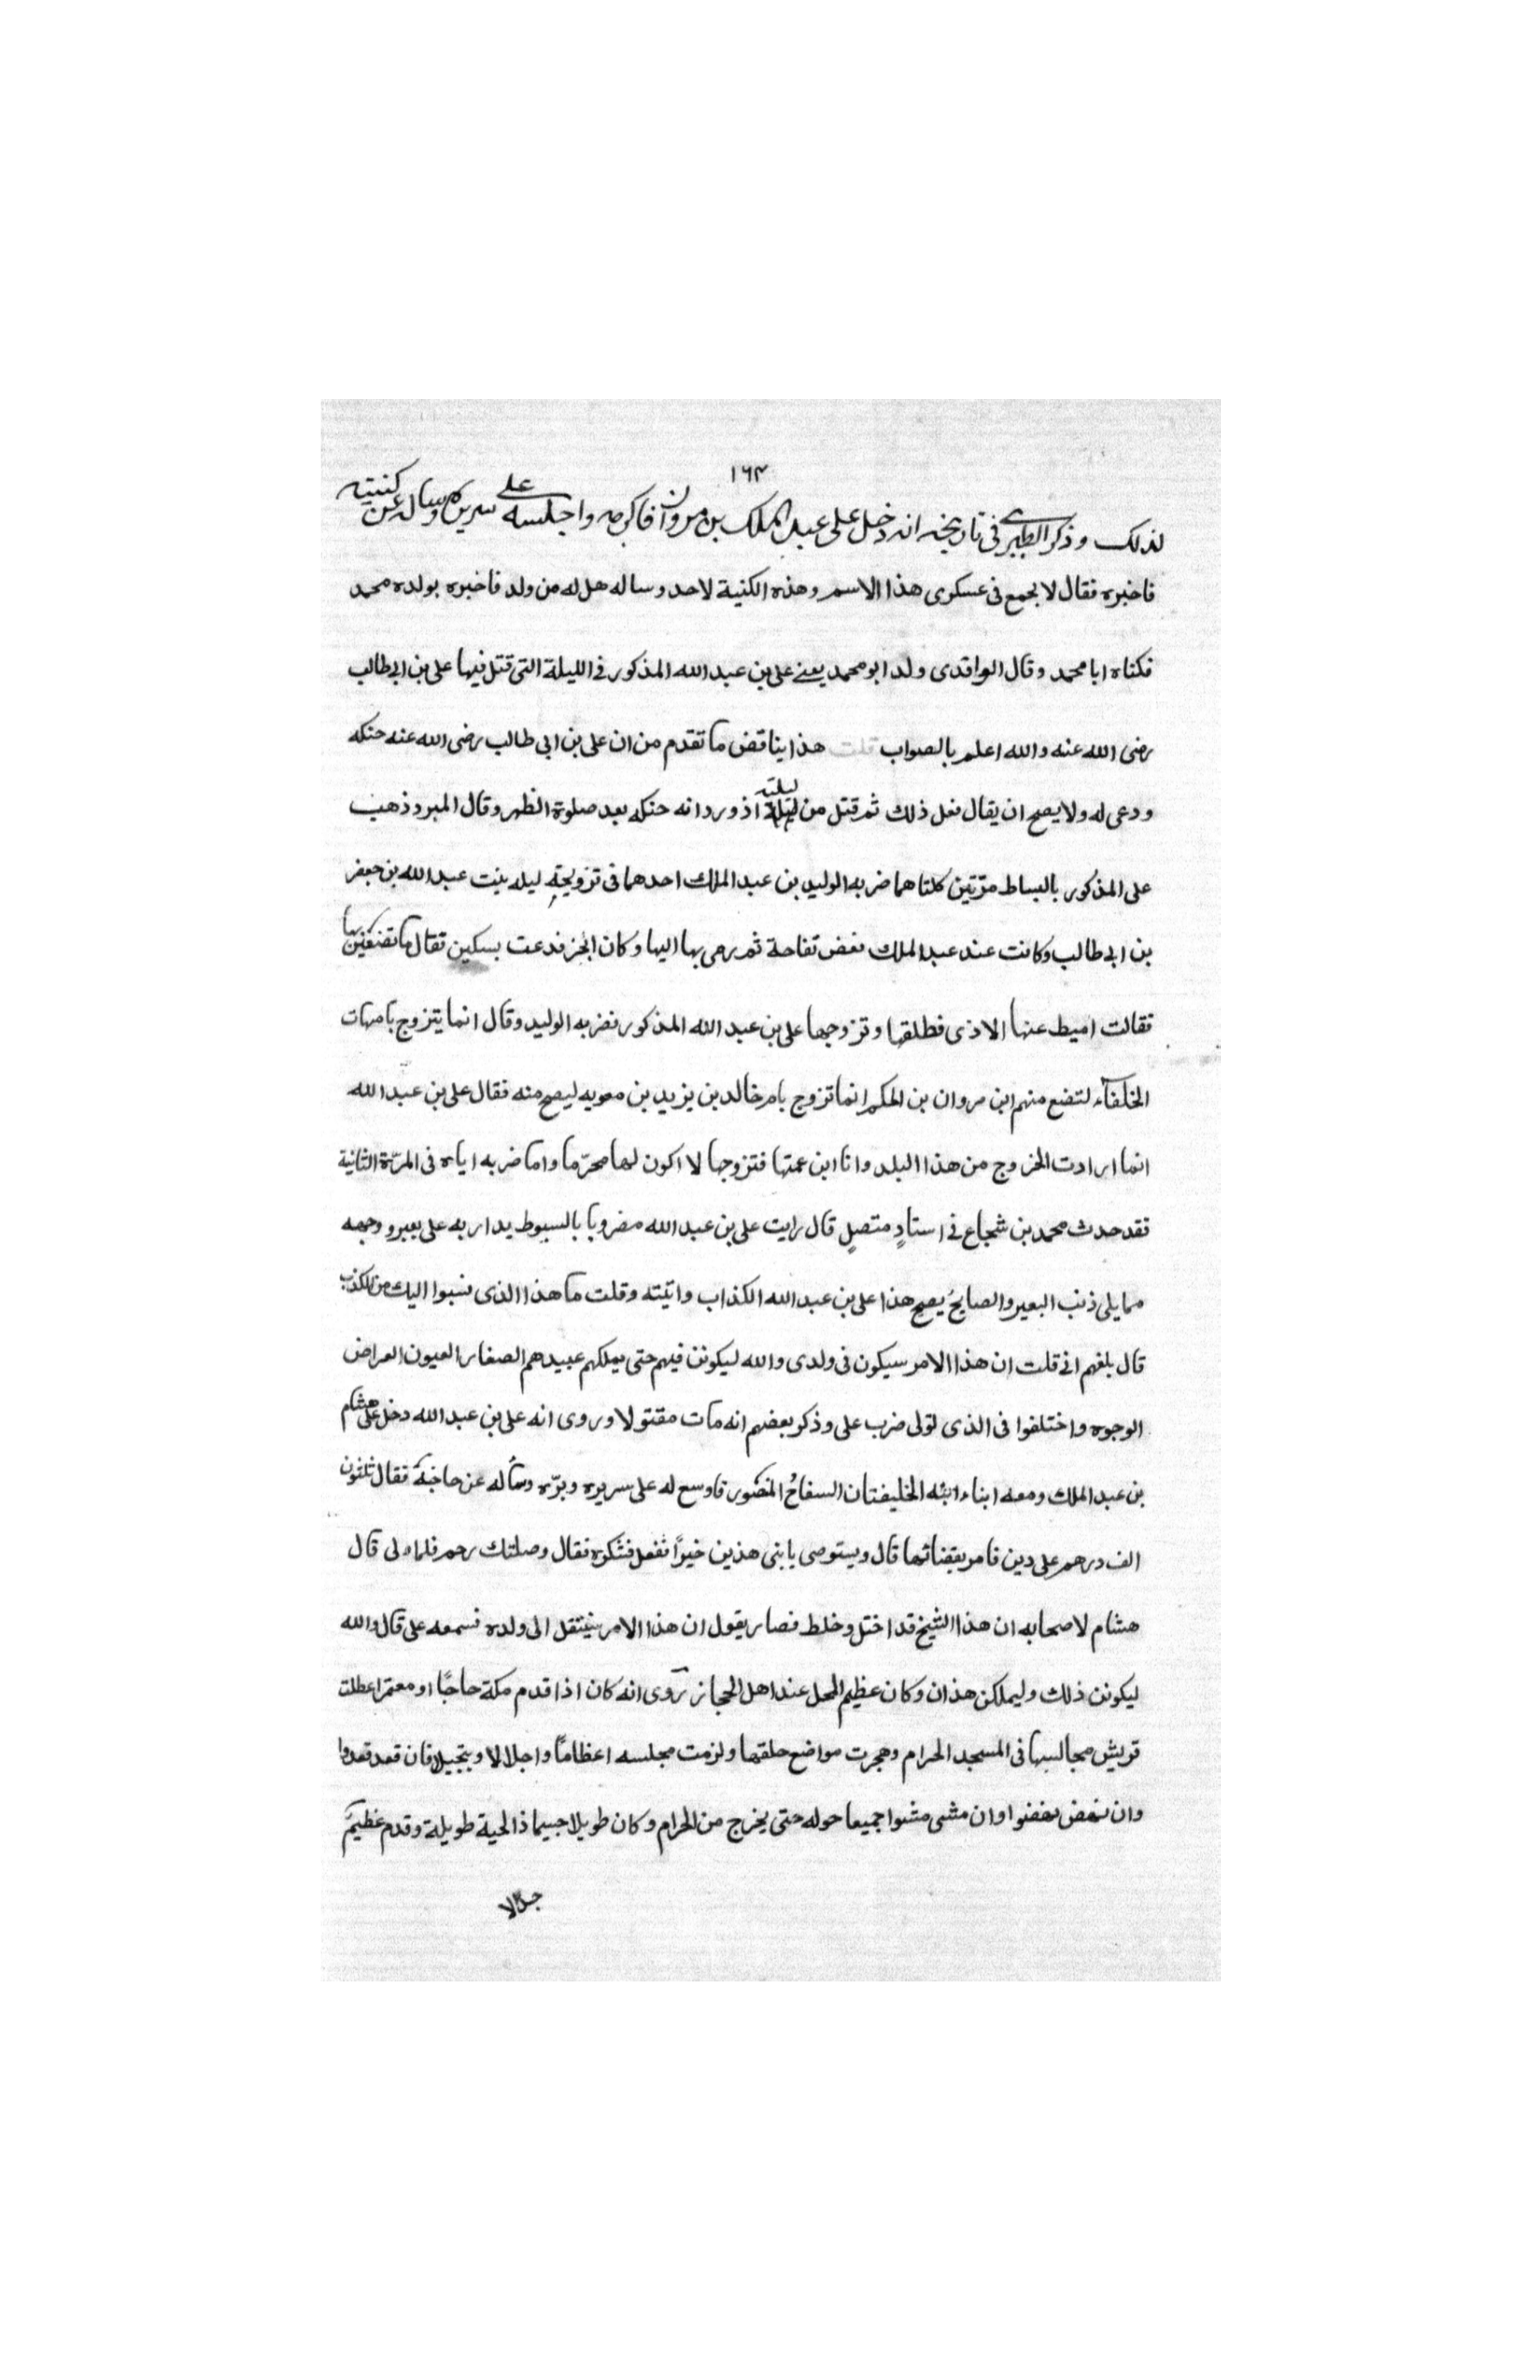 ١٦٣
لذلك وذكر الطبرى فى تاريخه انه دخل على عبد الملك بن مروان فاكرمه واجلسه على سريره وساله عن كنيته
فاخبره فقال لا يجمع فى عسكرى هذا الاسم وهذه الكنية لاحد وساله هل له من ولد فاخبره بولده محمد
فكناه ابا محمد وقال الواقدى ولد ابو محمد يعنے على بن عبد الله المذكور فى الليلة التى قتل فيها على بن ابى طالب
رضى الله عنه والله اعلم بالصواب قلت هذا يناقض ما تقدم من ان على بن ابى طالب رضى الله عنه حنكه
ودعى له ولا يصح ان يقال فعل ذلك ثم قتل من ليلته اذ ورد انه حنكه بعد صلوة الظهر وقال المبرد ذهب
على المذكور بالبساط مرّتين كلتاهما ضربه الوليد بن عبد الملك احدهما فى تزويجه ليله بنت عبد الله بن جعفر
بن ابى طالب وكانت عند عبد الملك نعض تفاحة ثم رمى بها اليها وكان ابخر فدعت بسكين فقال ما تصنعين بها
فقالت اميط عنها الاذى فطلقها وتزوجها على بن عبد الله المذكور فضربه الوليد وقال انما يتزوج بامهات
الخلفآء لتضع منهم ابن مروان بن الحكم انما تزوج بام خالد بن يزيد بن معويه ليصح منه فقال على بن عبد الله
انما ارادت الخروج من هذا البلد وانا ابن عمتها فتزوجها لا اكون لها محرّما واما ضربه اياه فى المرّة الثانية
فقد حدث محمد بن شجاع فى استادٍ متصلٍ قال رايت على بن عبد الله مضروبا بالسيوط يدار به على بعير ووجهه
مما يلى ذنب البعير والصايحُ يصيح هذا على بن عبد الله الكذاب واتيته وقلت ما هذا الذى نسبوا اليك من الكذب
قال بلغهم انى قلت ان هذا الامر سيكون فى ولدى والله ليكونن فيهم حتى يملكهم عبيدهم الصغار العيون العراض
الوجوه واختلفوا فى الذى لتولى ضرب على وذكر بعضهم انه مات مقتولا وروى انه على بن عبد الله دخل على هشام
بن عبد الملك ومعه ابناء ابنه الخليفتان السفاحُ المنصور فاوسع له على سريره وبرّه وسأله عن حاجته فقال ثلثون
الف درهم على دين فامر بقضائها قال ويستوصى يابنى هذين خيرًا نفعل فشكره فقال وصلتك رحم فلما ولى قال
هشام لاصحابه ان هذا الشيخ قد اختل وخلط فصار يقول ان هذا الامر سينتقل الى ولده فسمعه على قال والله
ليكونن ذلك وليملكن هذان وكان عظيم المحل عند اهل الحجاز روى انه كان اذا قدم مكة حاجًا او معتمرا عطلت
قريش مجالسها فى المسجد الحرام وهجرت مواضع حلقها ولزمت مجلسه اعظامًا واجلالا وبتجيلا فان قعد قعدوا
وان نهض نهضوا وان مشى مشوا جميعا حوله حتى يخرج من الحرام وكان طويلا جسيما ذا لحية طويلة وقدم عظيم